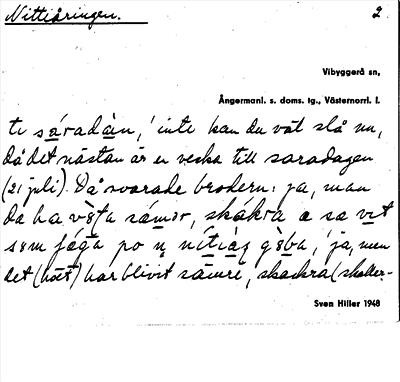 Nittiåringen. 2
Vibyggerå sn,
Ångermanl. s. doms. tg., Västernorrl. l.
te sáradàn, 'inte kan du väl slå nu,
då det nästan är en vecka till saradagen
(21 juli). Då svarade brodern: ja, man
då ha sámər, skákra a sa vit
sem jága po ṇ nítiàg gọ̀ba, 'ja, men
det (höet) har blivit sämre, skackra (skaller-
Sven Hiller 1948